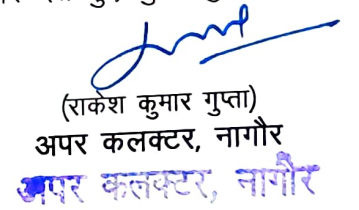 (राकेश कुमार गुप्ता)
अपर कलक्टर, नागौर
अपर कलक्टर, नागौर